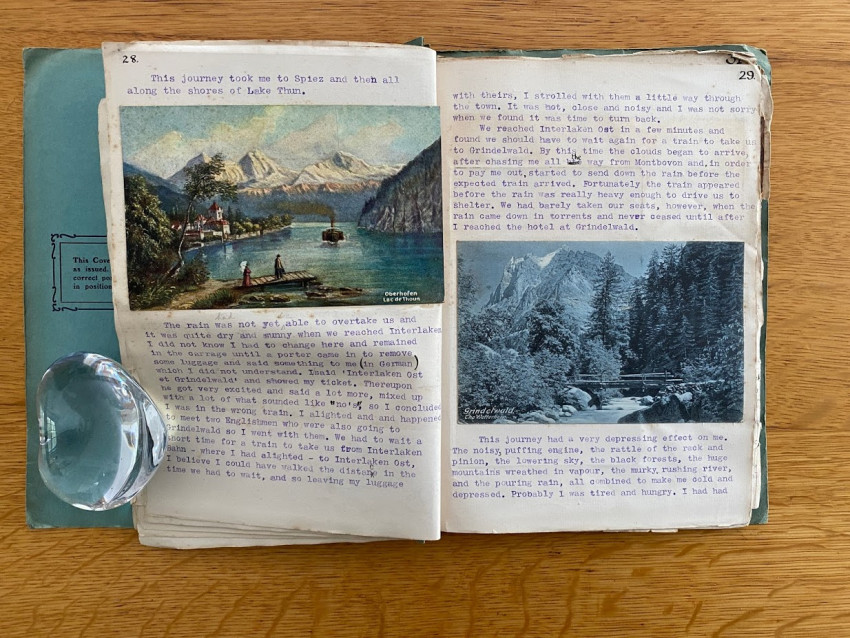 28.
This journey took me to Spiez and then all
along the shores of Lake Thun.
Oberhofen
Lac de Thoune
This Cove
as issued.
correct po
in position
The rain was not yet able to overtake us and
it was quite dry and sunny when we reached Interlake
I did not know I had to change here and remained
in the carrage until a porter came in to remove
some luggage and said something to me (in German)
which I did not understand. I said 'Interlaken Ost
et Grindelwald' and showed my ticket. Thereupon
he got very excited and said a lot more, mixed up
with a lot of what sounded like "no's", so I conclude
I was in the wrong train. I alighted and and happened
to meet two Englishmen who were also going to
Grindelwald so I went with them. We had to wait a
short time for a train to take us from Interlaken
Bahn - where I had alighted - to Interlaken Ost,
I believe I could have walked the distance in the
time we had to wait, and so leaving my luggage
29.
with theirs, I strolled with them a little way through
the town. It was hot, close and noisy and I was not sorry
when we found it was time to turn back.
We reached Interlaken Ost in a few minutes and
found we should have to wait again for a train to take us
to Grindelwald. By this time the clouds began to arrive,
after chasing me all the way from Montbovon and, in order
to pay me out, started to send down the rain before the
expected train arrived. Fortunately the train appeared
before the rain was really heavy enough to drive us to
shelter. We had barely taken our seats, however, when the
rain came down in torrents and never ceased until after
I reached the hotel at Grindelwald.
Grindelwald
This journey had a very depressing effect on me.
The noisy, puffing engine, the rattle of the rack and
pinion, the lowering sky, the black forests, the huge
mountains wreathed in vapour, the murky, rushing river,
and the pouring rain, all combined to make me cold and
depressed. Probably I was tired and hungry. I had had